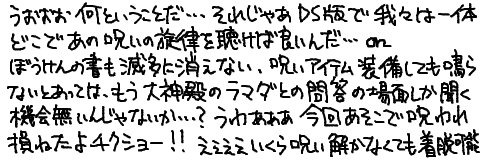 うおおお 何ということだ… それじゃあ DS版で 我々は一体
どこであの呪いの旋律を聴けば良いんだ… on
ぼうけんの書も滅多に消えない、呪いアイテム 装備しても鳴ら
ないとあっては、もう大神殿のラマダとの問答の場面しか聞く
機会無いんじゃないか…? うわぁああ 今回あそこで呪われ
損ねたよチクショー!! えええええいくら呪い解かなくても着脱可能